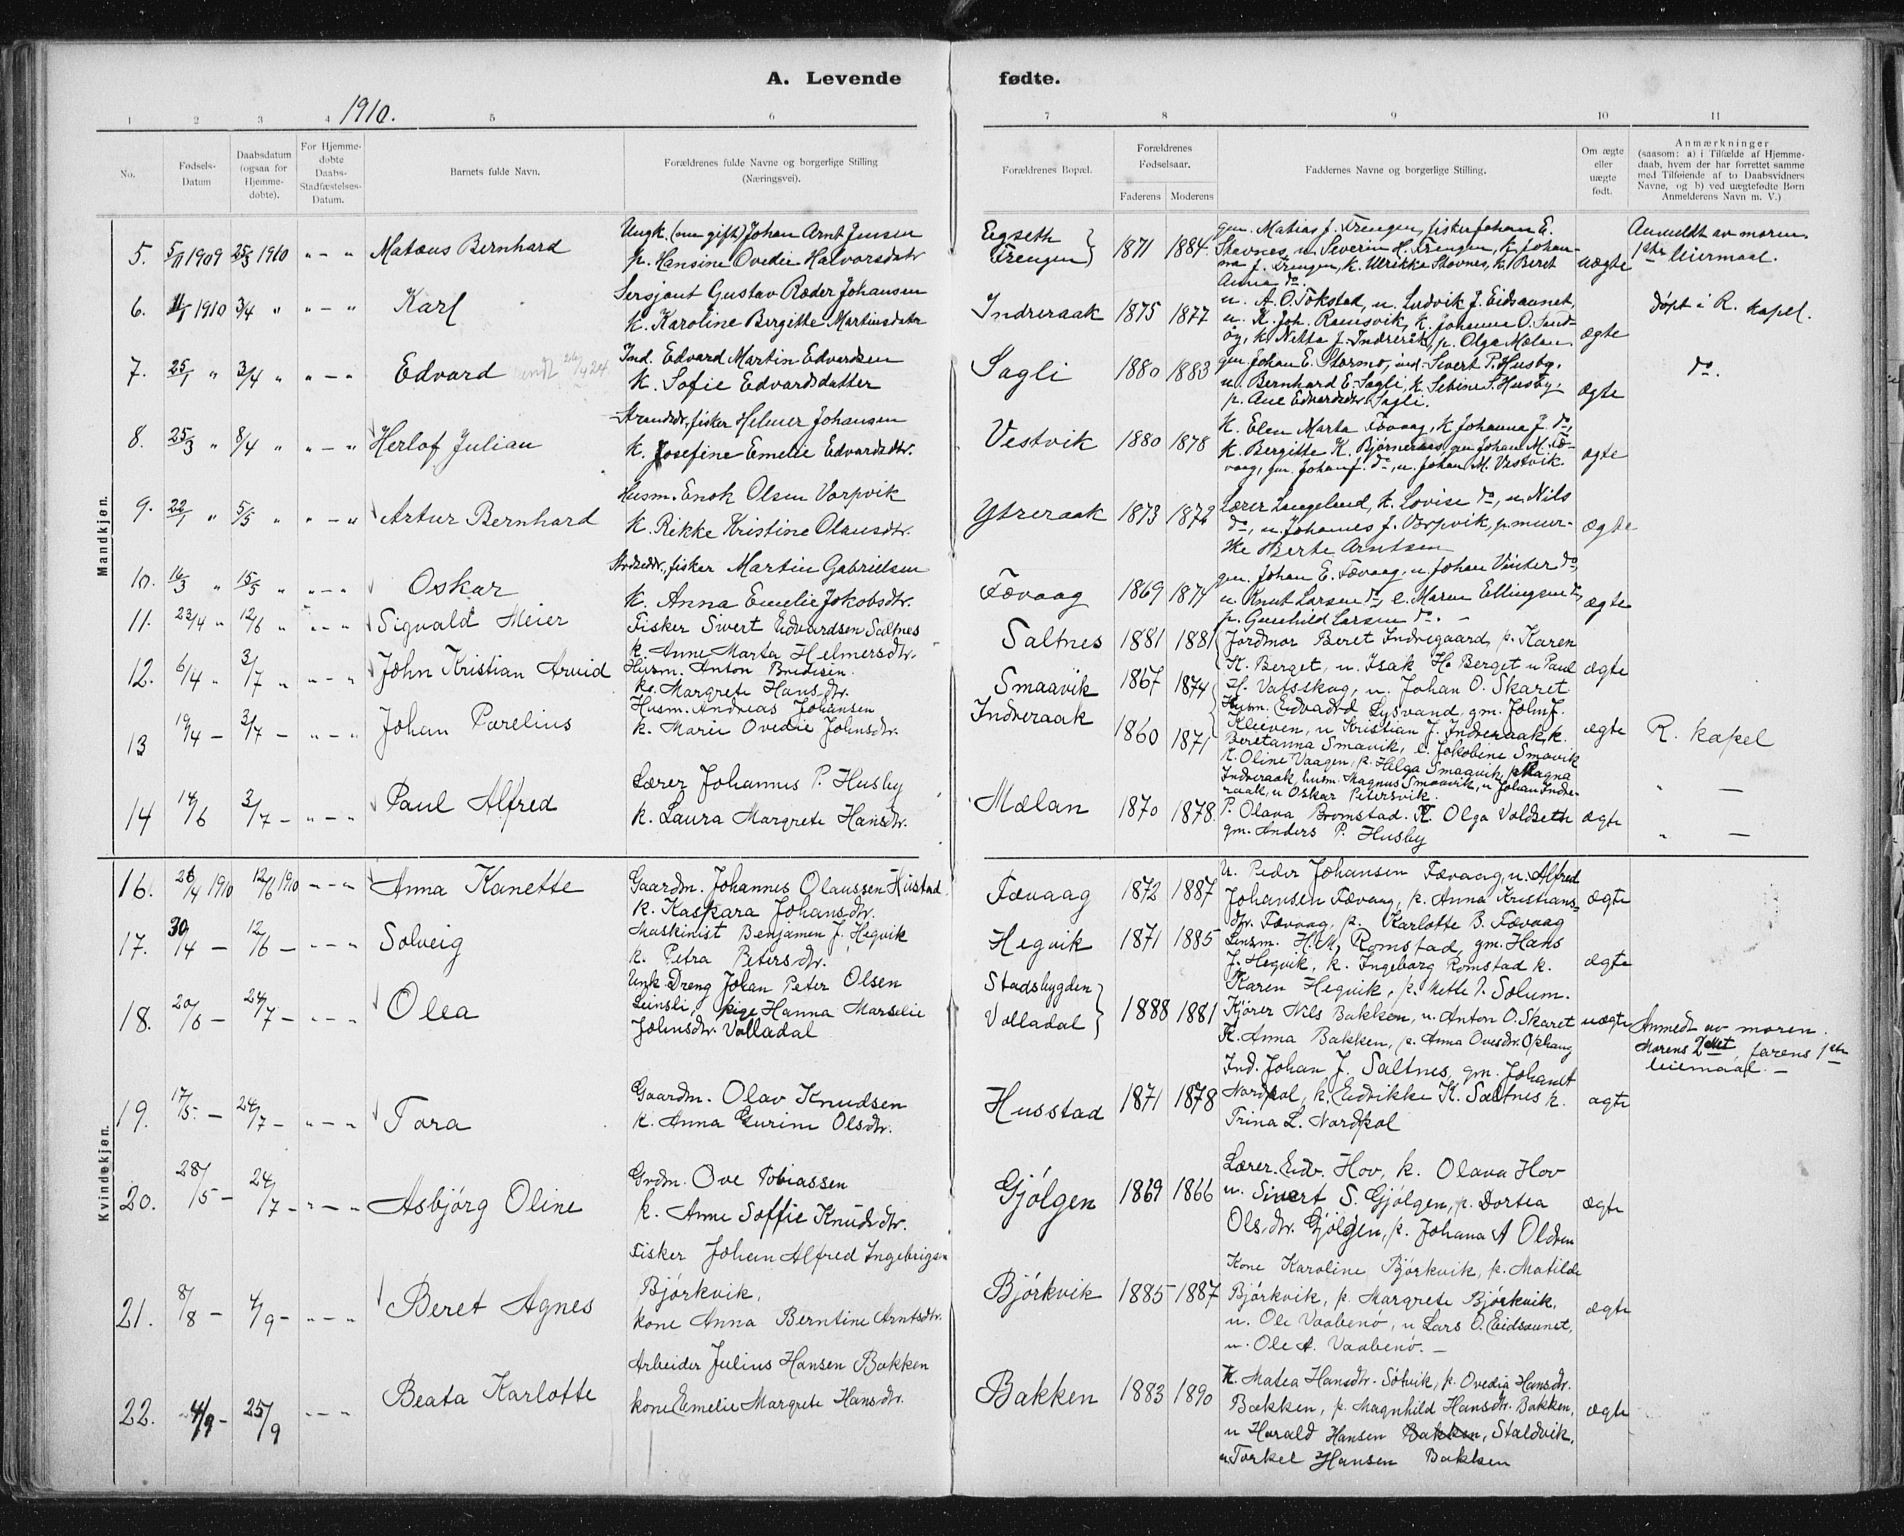 A. Levende fødte.
1910.
1 2 3 4 5 6 7 8 9 10 11
No.
Fødsels-
Datum
Daabsdatum
(ogsaa for
Hjemme-
døbte).
For Hjemme-
døbte
Daabs-
Stadfæstelses-
Datum.
Barnets fulde Navn.
Forældrenes fulde Navne og borgerlige Stilling
(Næringsvei).
Forældrenes Bopæl.
Forældrenes
Fødselsaar.
Faderens Moderens
Faddernes Navne og borgerlige Stilling.
Om ægte
eller
uægte
født.
Anmærkninger
(saasom: a) i Tilfælde af Hjemme-
daab, hvem der har forrettet samme
med Tilføiende af to Daabsvidners
Navne, og b) ved uægtefødte Børn
Anmelderens Navn m. V.)
Mandkjøn.
5. 5/11 1909 25/3 1910 " - " Mataus Bernhard
Ungk. (nu gift) Johan Arnt Jensen
p. Hansine Ovedie Halvorsdatr
Eigseth
Trengen } 1871 1884
gm. Matias J. Trengen, fisker Johan E.
Stavnes, u. Severin H. Trengen, k. Johan-
na J. Trengen, k. Ulrikke Stavnes, k. Beret
Anna do
uægte
Anmeldt av moren.
1ste leiermaal.
6. 1910 3/4 " " - " Karl
Sersjant Gustav Ræder Johansen
k. Karoline Bergitte Martinsdatr
Indreraak 1875 1877
u. A. O. Tokstad, u. Ludvik J. Eidsaunet,
u. K. Joh. Ramsvik, k. Johanna O. Sand-
øy, k. Nitta J. Indreråk, p. Olga Mælan
ægte
døpt i R. kapel.
7. 25/1 " 3/4 " " - " Edvard
Ind. Edvard Martin Edvardsen
k. Sofie Edvardsdatter
Sagli 1880 1883
gm Johan E. Stormo, ind. Sivert P. Husby,
u. Bernhard E. Sagli, k. Sebine S. Husby,
p. Ane Edvardsdtr Sagli.
ægte
do.
8. 25/3 " 8/4 " " - " Herlof Julian
Strandsdr, fisker Helmer Johansen
k. Josefine Emelie Edvardsdtr.
Vestvik 1880 1878
k. Elen Marta Fævaag, k Johanna J. do,
k. Bergitte K. Bjørneraas, gm Johan M. Fæ-
vaag, gm. Johan J. do, u. Johan M. Vestvik.
ægte
9. 22/1 " 5/5 " " - " Artur Bernhard
Husm. Enok Olsen Vorpvik
k. Rikke Kristine Olausdtr.
Ytreraak 1873 1872
Lærer Langeland, k. Lovise do, u. Nils
do, u. Johannes J. Vorpvik, p. meier-
ske Berte Arntsen
ægte
10. 16/3 " 15/5 " " - " Oskar
fisker Martin Gabrielsen
k. Anna Emelie Jakobsdtr.
Fævaag 1869 1871
gm. Johan E. Fævaag, u Johan Vinter do,
u Knut Larsen do, e. Maren Ellingsen do,
p. Gunhild Larsen do. -
ægte
11. 23/4 " 12/6 " " - " Sigvald Meier
Fisker Sivert Edvardsen Saltnes
k. Anne Marta Helmersdtr.
Saltnes 1881 1881
Jordmor Beret Indregaard, p. Karen
K. Berget, u. Isak H. Berget u Paul
H. Vatsskag, u. Johan O. Skaret
ægte
12. 6/4 " 3/7 " " - " John Kristian Arvid
Husm. Anton Bredisen
k. Margrete Hansdtr.
Smaavik 1867 1874
Husm. Edvard Lysvand, gm. John J.
Kleiven, u Kristian J. Indreraak, k.
13 19/4 - 3/7 - " - " Johan Parelius
Husm. Andreas Johansen
k. Marie Ovedie Johnsdtr.
Indreraak 1860 1871
Beretanna Smavik, e. Jokobine Smavik
k. Oline Vaagen, p. Helga Smaavik, p. Ragna
Indreraak, husm. Magnus Smaavik, u Johan Indre-
raak, u Oskar Petersvik.
ægte
R. kapel
14 14/6 3/7 - " - " Paul Alfred
Lærer Johannus P. Husby
k. Laura Margrete Hansdtr.
Mælan 1870 1878.
P. Olava Bromstad. K Olga Voldseth
gm. Anders P. Husby
ægte
" -
" -
Kvindekjøn.
16. 26/4 1910 12/6 1910 " - " Anna Kanette
Gaardm. Johannes Olaussen Hustad
k. Kaspara Johansdtr.
Fævaag 1872 1887
U. Peder Johansen Fævaag, u. Alfred
Johansen Fævaag, p. Anna Kristians-
dtr. Fævaag, p. Karlotte B. Fævaag
ægte
17. 30/4 - 12/6 - " - " Solveig
Maskinist Benjamen J. Hegvik
k. Petra Petersdtr.
Hegvik 1871 1885
Lensm. H. M. Romstad, gm. Hans
J. Hegvik, k. Ingeborg Romstad k.
Karen Hegvik, p. Mette P. Solum.
ægte
18. 20/6 - 24/7 - " - " Olea
Unk. Dreng Johan Peter Olsen
Leinsli, pige Hanna Marselie
Johnsdtr. Volladal
Stadsbygden
Volladal } 1888 1881
Kjører Nils Bakken, u. Anton O. Skaret
K. Anna Bakken, p. Anna Ovesdtr. Ophaug
uægte
Anmedt av moren.
Morens 2det, farens 1ste
leiermaal. -
19. 17/5 - 24/7 - " - " Tora
Gaardm. Olav Knudsen
k. Anna Gurine Olsdtr.
Husstad 1871 1878
Ind. Johan J. Saltnes, gm. Johan
Nordpol, k. Endrikke K. Saltnes k.
Trina L. Nordpol
ægte
20. 28/5 - 24/7 - " - " Asbjørg Oline
Grdm. Ove Tobiassen
k. Anne Soffie Knudsdtr.
Gjølgen 1869 1866
Lærer. Edv. Hov, k. Olava Hov
u. Sivert S. Gjølgen, p. Dortea
Olsdtr. Gjølgen, p. Johana A Olden
ægte
21. 8/8 - 4/9 - " - " Beret Agnes
Fisker Johan Alfred Ingebrigsn
Bjørkvik,
kone Anna Berntine Arntsdtr.
Bjørkvik 1885 1887
Kone Karoline Bjørkvik, p. Matilde
Bjørkvik, p Margrete Bjørkvik,
u. Ole Vaabenø, u Lars O. Eidsaunet,
u. Ole A. Vaabenø. -
ægte
22. 4/9 - 25/9 " - " Beata Karlotte
Arbeider Julius Hansen Bakken
kone Emelie Margrete Hansdtr.
Bakken 1883 1890
K. Matea Hansdtr. Søtvik, p. Ovedia Hansdtr.
Bakken, p. Magnhild Hansdtr. Bakken,
u Harald Hansen Bakken, Staldvik,
u Torkel Hansen Bakken
ægte